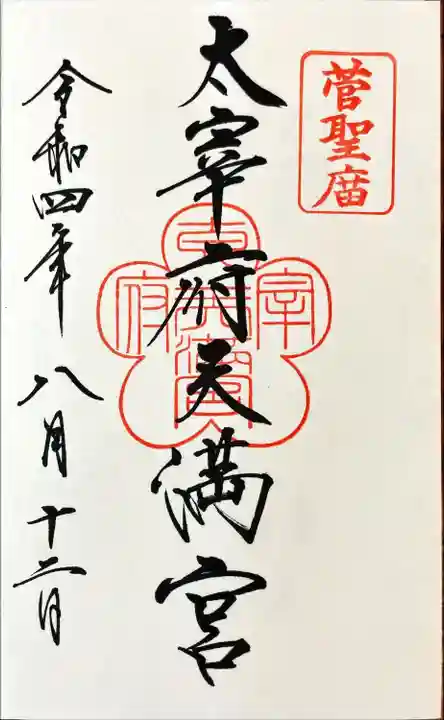 菅聖庿
太宰府天満宮
令和四年八月十二日